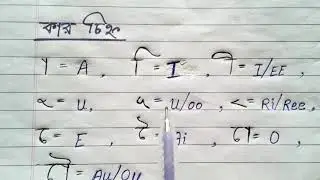 কার চিহ্ন
া = A , ি = I , ী = I/EE ,
ু = U, ূ = U/oo , ৃ = Ri/Ree,
ে = E , ৈ = i , ো = O ,
ৌ = AU/OU